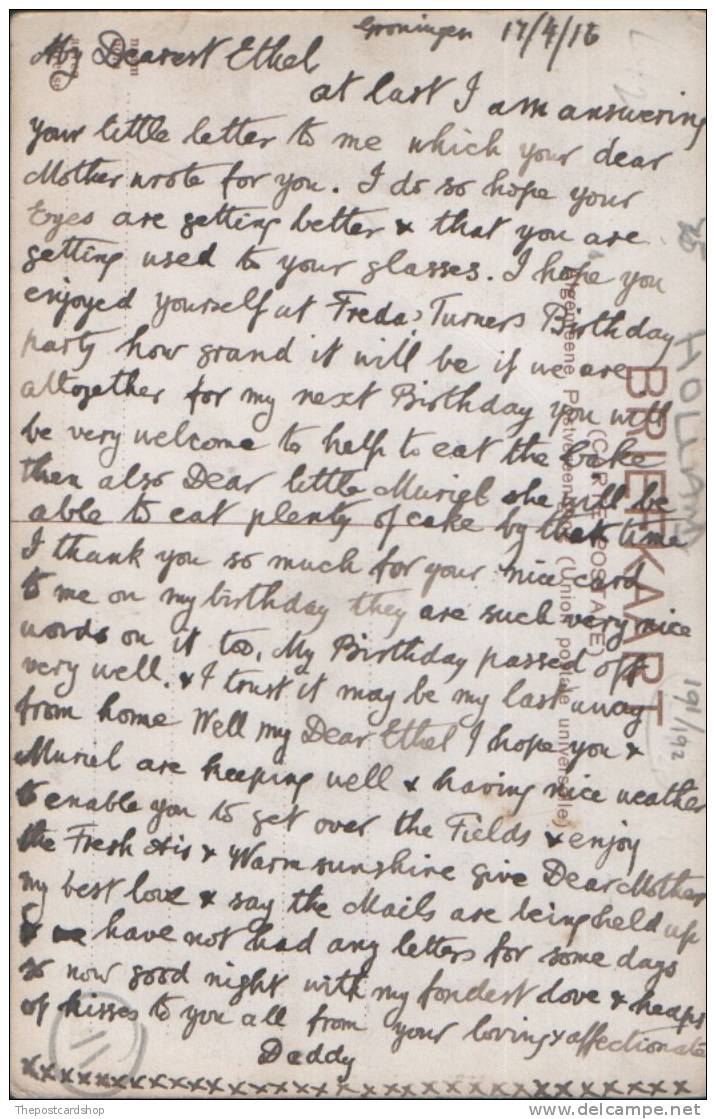 Groningen 17/4/16
My Dearest Ethel
at last I am answering
your little letter to me which your dear
Mother wrote for you. I do so hope your
Eyes are getting better & that you are
getting used to your glasses. I hope you
enjoyed yourself at Freda Turners Birthday
party how grand it will be if we are
altogether for my next Birthday you will
be very welcome to help to eat the cake
then also Dear little Muriel she will be
able to eat plenty of cake by that time
I thank you so much for your nice card
to me on my birthday they are such very nice
words on it too, My Birthday passed off
very well. & I trust it may be my last away
from home Well my Dear Ethel I hope you &
Muriel are keeping well & having nice weather
to enable you to get over the Fields & enjoy
the Fresh Air & Warm sunshine give Dear Mother
my best love & say the Mails are being held up
& we have not had any letters for some days
so now good night with my fondest love & heaps
of kisses to you all from your loving & affectionate
Daddy
xxxxxxxxxxxxxxxxxxxxxxxxxxxxxxxxxxxx
BRIEFKAART
(CARTE POSTALE)
Algemeene Postvereeniging (Union postale universelle)
HOLLAND
191/192
11
Thepostcardshop
delcampe.net